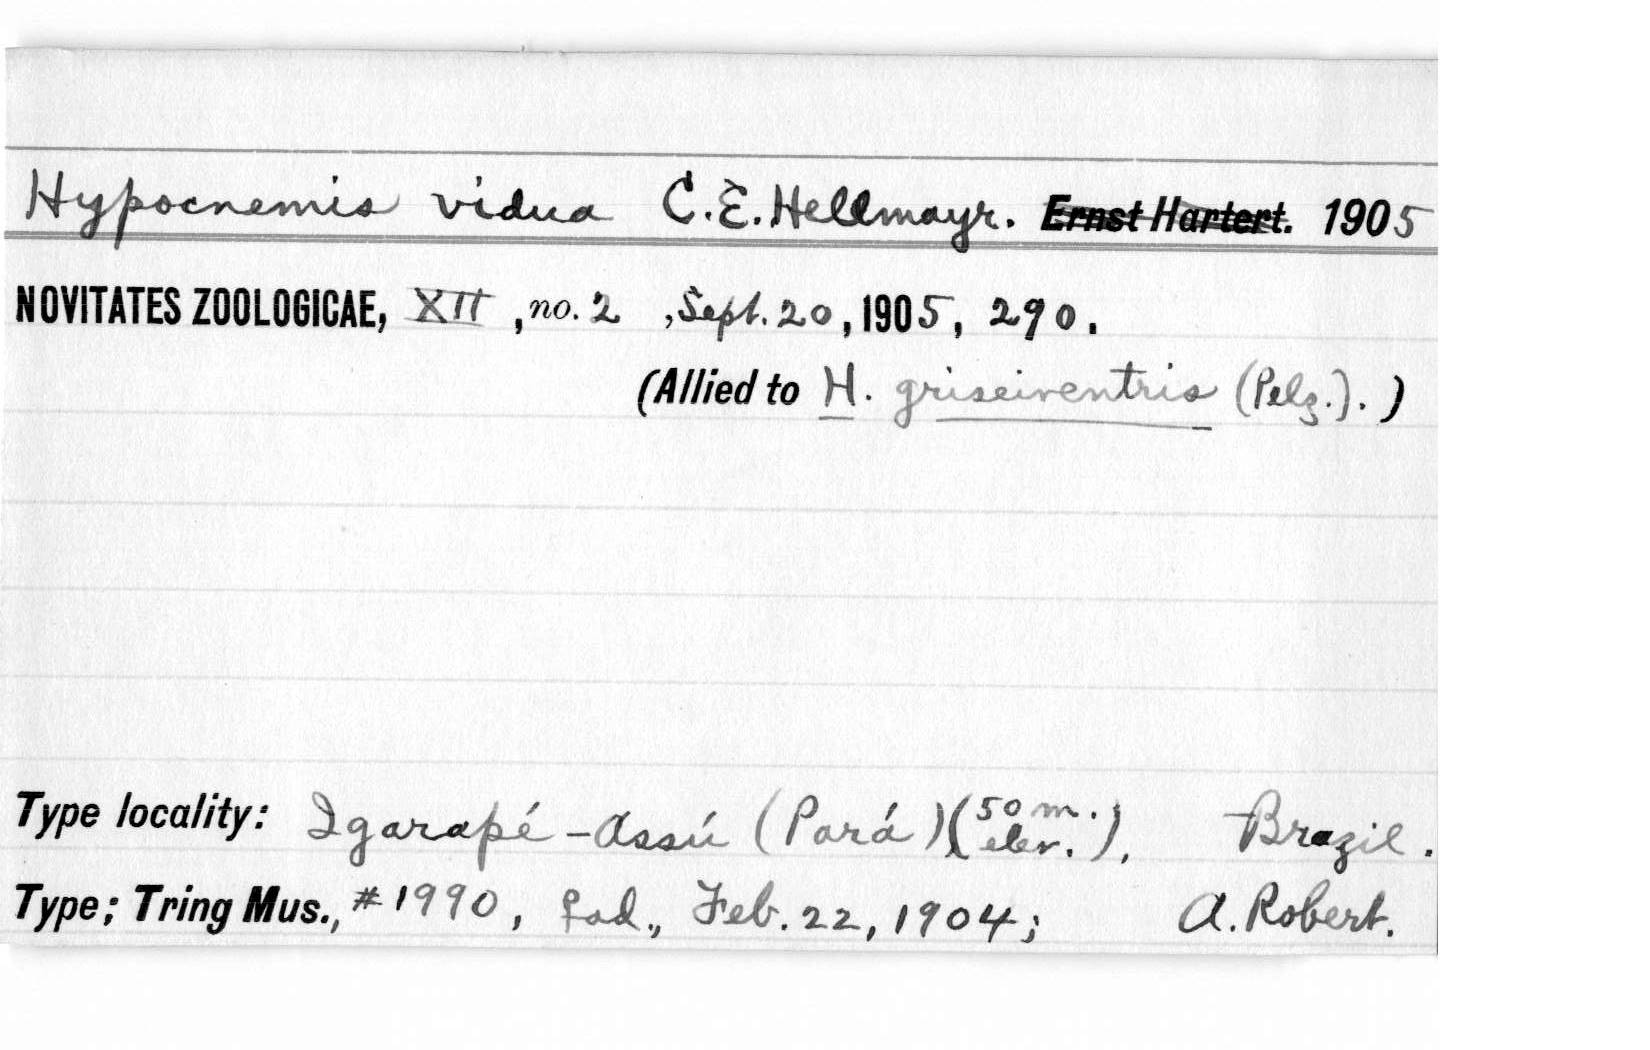 Hypocnemis vidua C.E. Hellmayr. Ernst Hartert. 1905
NOVITATES ZOOLOGICAE, XII, no. 2, Sept. 20, 1905, 290.
(Allied to H. griseiventris (Pelz.). )
Type locality: Igarapé-Assú (Pará) (50 m. elev.), Brazil.
Type; Tring Mus., #1990, ♀ad., Feb. 22, 1904; A. Robert.